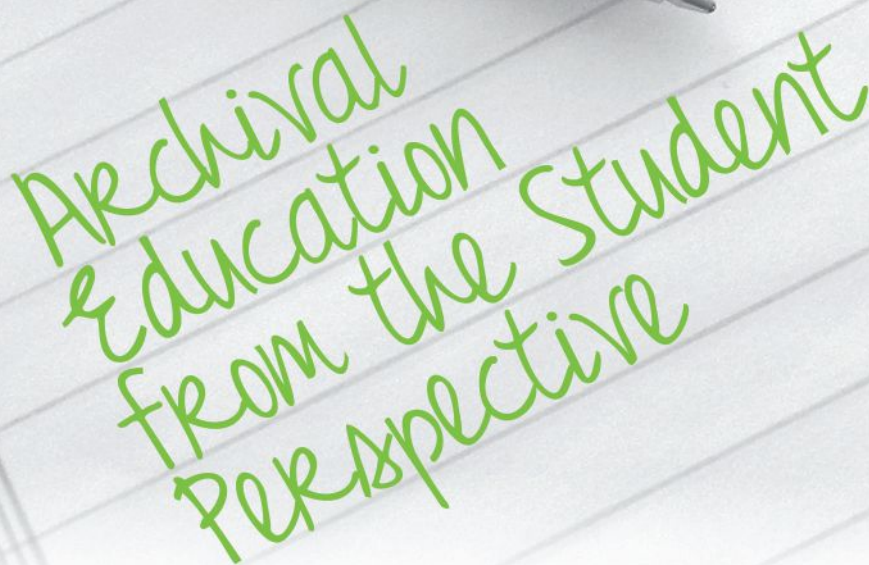 Archival
Education
from the Student
Perspective